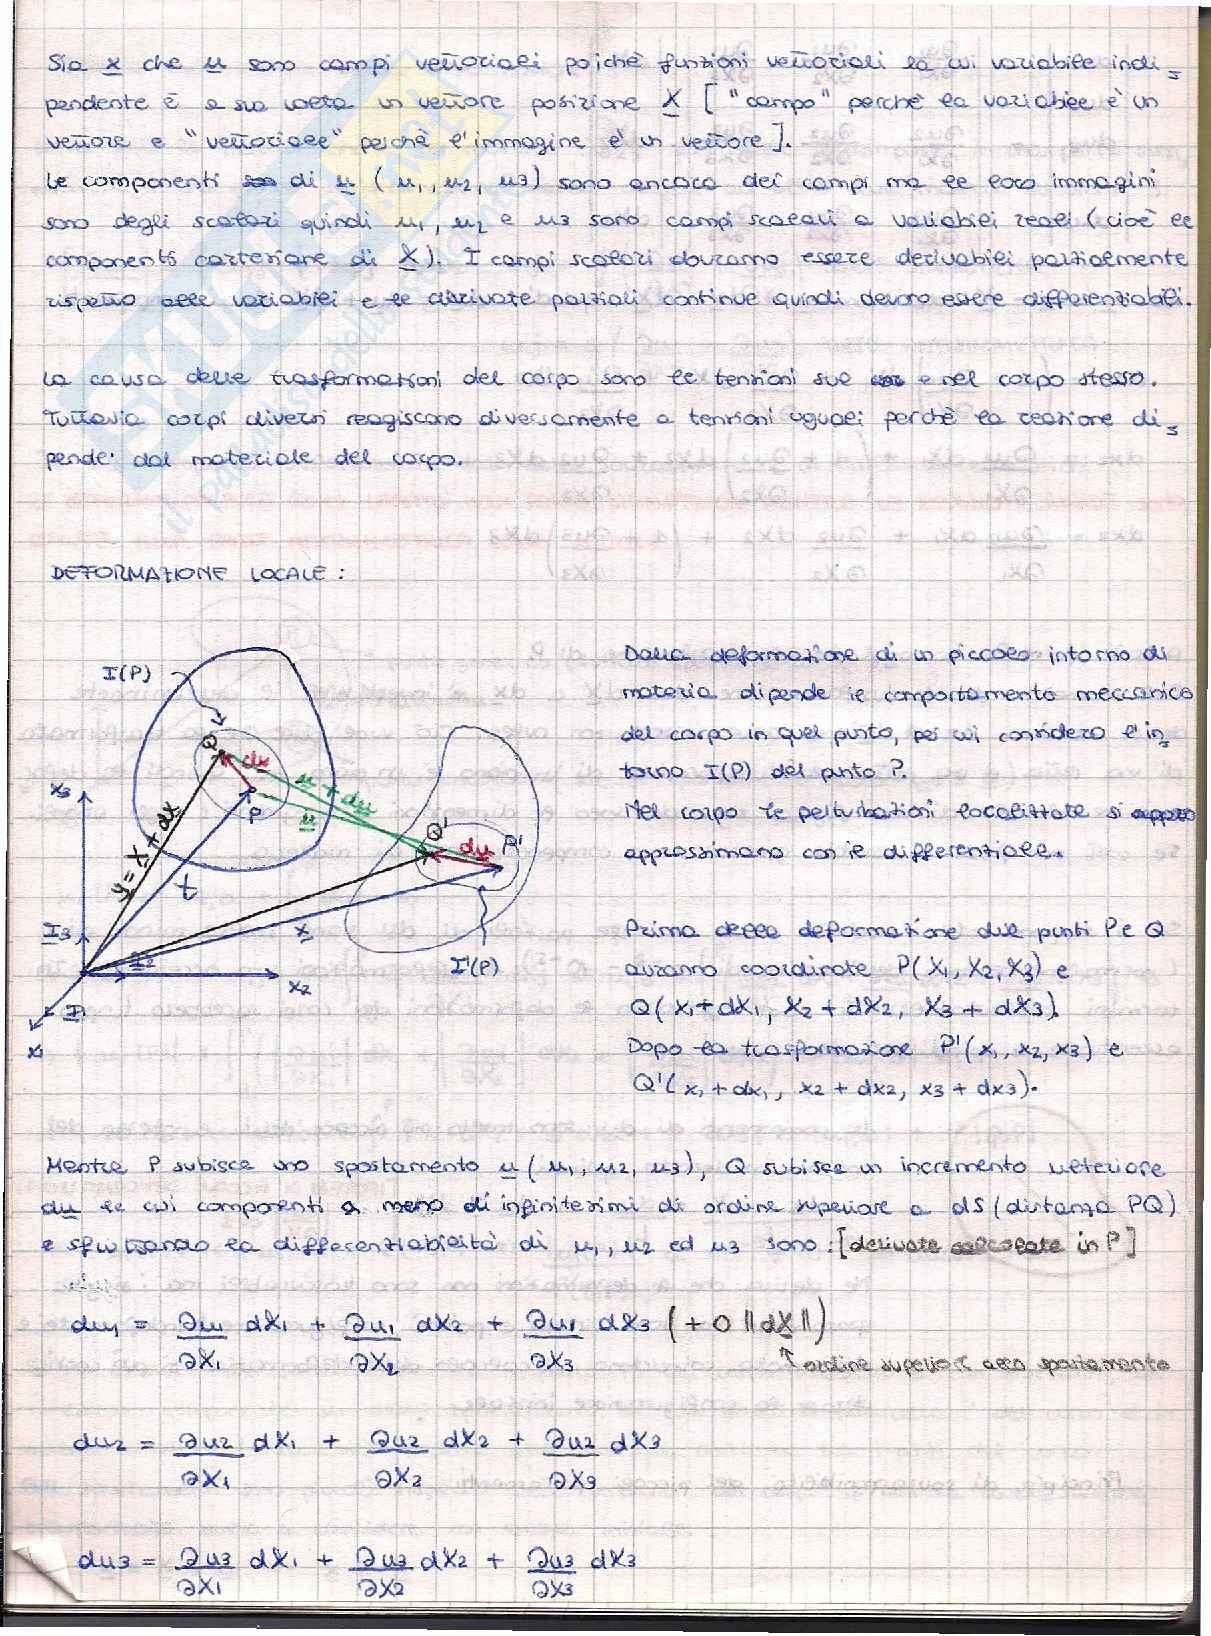 Sia x che u sono campi vettoriali poichè funzioni vettoriali la cui variabile indi=
pendente è a sua volta un vettore posizione X [ "campo" perchè la variabile è un
vettore e "vettoriale" perchè l'immagine è un vettore ].
Le componenti di u ( u1, u2, u3) sono ancora dei campi ma le loro immagini
sono degli scalari quindi u1, u2 e u3 sono campi scalari a variabili reali ( cioè le
componenti cartesiane di X ). I campi scalari dovranno essere derivabili parzialmente
rispetto alle variabili e le derivate parziali continue quindi devono essere differenziabili.
La causa delle trasformazioni del corpo sono le tensioni sul e nel corpo stesso.
Tuttavia corpi diversi reagiscono diversamente a tensioni uguali perchè la reazione di=
pende dal materiale del corpo.
DEFORMAZIONE LOCALE :
Dalla deformazione di un piccolo intorno di
materia dipende il comportamento meccanico
del corpo in quel punto, per cui considero l'in=
torno I(P) del punto P.
Nel corpo le perturbazioni localizzate si
approssimano con il differenziale.
Prima della deformazione due punti P e Q
avranno coordinate P( X1, X2, X3) e
Q( X1+dX1, X2+dX2, X3+dX3).
Dopo la trasformazione P'( x1, x2, x3) e
Q'( x1+dx1, x2+dx2, x3+dx3).
I(P)
Q
dx
P
u + du
u
Q'
du
P'
y = X + dX
t
x
I'(P)
x3
I3
I2
x2
I1
x1
Mentre P subisce uno spostamento u ( u1, u2, u3), Q subisce un incremento ulteriore
du le cui componenti a meno di infinitesimi di ordine superiore a dS (distanza PQ)
e sfruttando la differenziabilità di u1, u2 ed u3 sono : [derivate calcolate in P]
du1 = ∂u1/∂X1 dX1 + ∂u1/∂X2 dX2 + ∂u1/∂X3 dX3 ( + o ‖dX‖ )
↑ ordine superiore allo spostamento
du2 = ∂u2/∂X1 dX1 + ∂u2/∂X2 dX2 + ∂u2/∂X3 dX3
du3 = ∂u3/∂X1 dX1 + ∂u3/∂X2 dX2 + ∂u3/∂X3 dX3